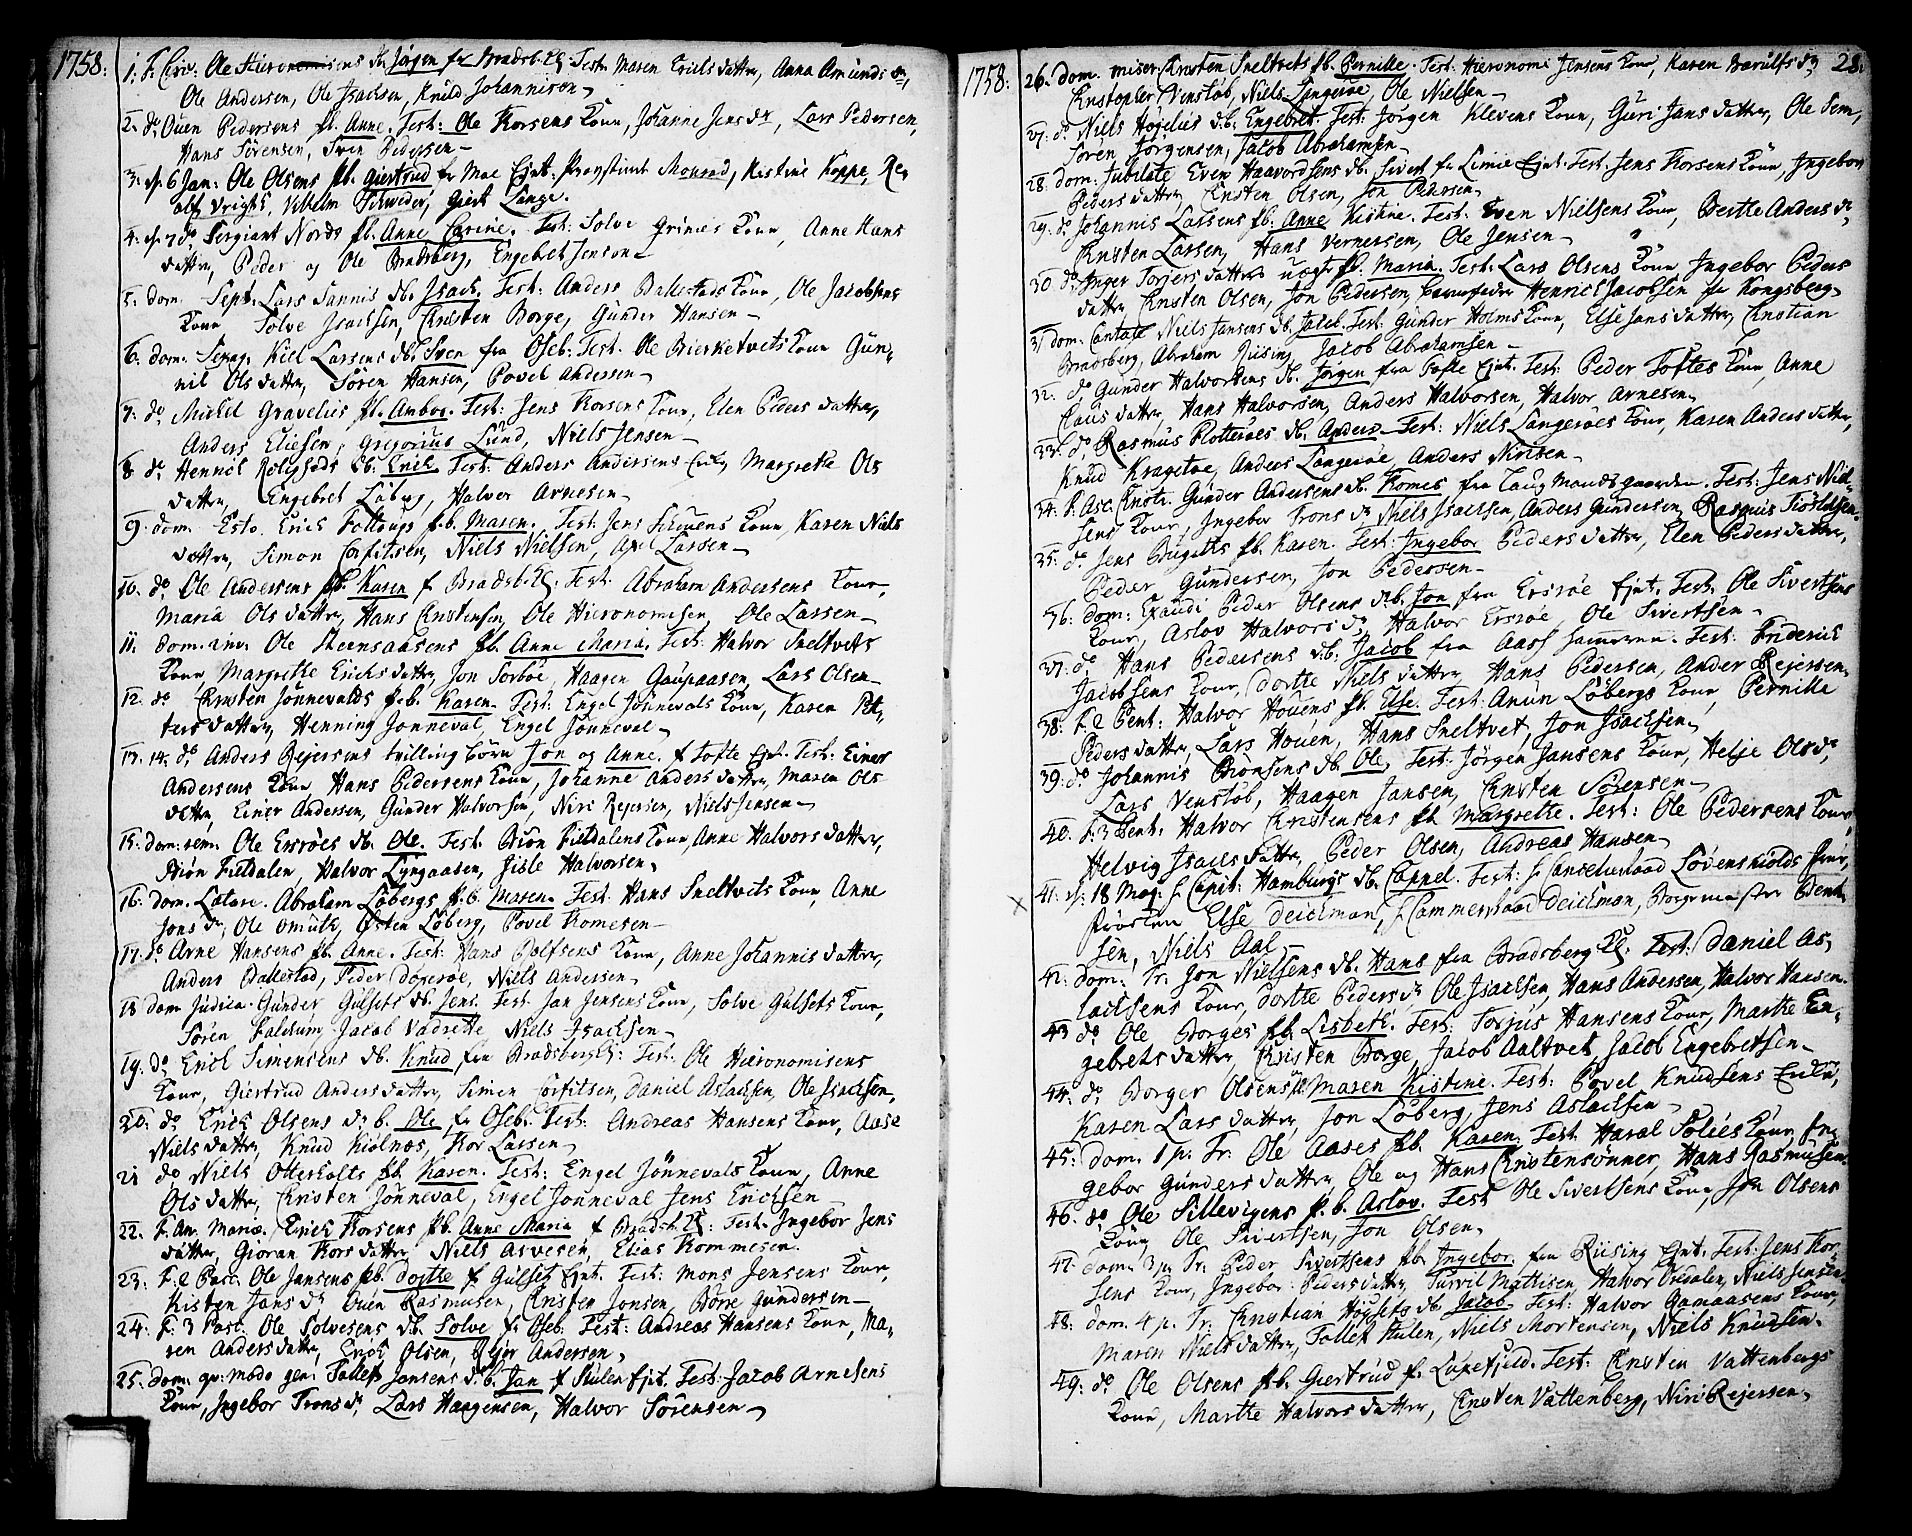 1758:
1: F. Circ. Ole Hieronomisens db. Jørgen fr Bradsb. Test. Maren Erichs datter, Anna Amunds dr,
Ole Andersen, Ole Isachsen, Knud Johannison
2. do Ouen Pedersens pb. Anne. Test: Ole Korsens Kone, Johanne Jens dr, Lars Pedersen,
Hans Sørensen, Sven Pedersen
3. d. 6 Jan: Ole Olsens pb. Giertrud fr Mae Ejnt. Monrad, Kistine Koppe,
Vright, Vilhelm Schneider, Giert Lange.
4. d. 7 do Sergiant Nords pb. Anne Carine. Test: Solve Grinies Kone, Anne Hans
datter, Peder og Ole Bradsberg, Engebret Jenson
5. dom. Sept. Lars Sannis db. Isach. Test: Anders Ballestads Kone, Ole Jacobsens
Kone Solve Isachsen, Christen Borge, Gunder Hansen
6. dom. Sexag. Kiel Larsens db. Sven fra Oseb. Test. Ole Bierketvets Kone Gun,
nil Ols datter, Søren Hansen, Povel Andersen
7. do Mickel Gravelies pb. Ambor. Test: Jens Korsens Kone, Elen Peders datter,
Anders Eliesen, Gregorius Lund, Niels Jensen
8 do. Henrich Roligheds db. Erich Test: Anders Andersens Enke, Margrethe Ols
datter, Engebret Løberg, Halvor Arnesen
9. dom. Esto. Erich Follaugs pb. Maren. Test: Jens Kone, Karen Niels
datter, Simon Corfitsen, Niels Nielsen, Axel Larsen
10. do Ole Andersens pb. Karen f Bradsb. Test. Abraham Andersens Kone
Maria Ols datter, Hans Christensen, Ole Hieronomisen, Ole Larsen
11. dom. inv. Ole Steensaasens pb. Anne Maria. Test: Halvor Sneltvets
Kone, Margrethe Erichs datter, Jon Sorboe, Haagen Gaupaasen, Lars Olsen
12. do Christen Jønnevalds pb. Karen. Test: Engel Jønnevals Kone, Karen Pet,
ters datter, Henning Jønneval, Engel Jønneval
13. 14. do Anders Rejersens tvilling børn Jon og Anne. f Tofte Ejnt. Test: Einer
Andersens Kone, Hans Pedersens Kone, Johanne Anders datter, Maren Ols
datter, Einer Andersen, Gunder Halvorsen, Niri Rejersen, Niels Jensen
15. dom: rem. Ole Ersrøes db. Ole. Test. Biøn Fieldalens Kone, Anne Halvors datter,
Biøn Fieldalen, Halvor Lyngaasen, Jisle Halvorsen.
16. dom. Lætare. Abraham Løbergs pb. Maren. Test Hans Sneltvets Kone, Anne
Jons dr, Ole Omuth, Østen Løberg, Povel Romesen
17. do Arne Hansens pb. Anne. Test: Hans Rolfsens Kone, Anne Johannis datter,
Anders Ballestad, Peder Døgerøe, Niels Andersen
18 dom Judica. Gunder Gulsets db. Jens. Test. Jan Jensens Kone, Solve Gulsets Kone,
Søren Falchum, Jacob Vadrette, Niels Isachsen
19. do Erich Simensens db. Knud fra Bradsberg: Test. Ole Hieronomisens
Kone, Giertrud Anders datter, Simen Corfitsen, Daniel Aslachsen, Ole Isachsen,
20. do Erich Olsens db. Ole fr Oseb. Test: Andreas Hansens Kone, Aase
Niels datter, Knud Kiølnes, Kor Larsen
21 do Niels Otterholts pb. Karen. Test: Engel Jønnevals Kone, Anne
Ols datter, Christen Jønneval, Engel Jønneval Jens Erichsen
22. F. An. Mariæ. Erich Korsens pb. Anne Maria f Bradsb.: Test. Ingebor Jens
datter, Gioran Kors datter, Niels Asvesen, Elias Rommesen.
23. F: 2 Pasc. Ole Jansens pb. Dorthe f Gulset Ejnt. Test: Mons Jensens Kone,
Kisten Jans dr Ouen Rasmusen, Christen Jonsen, Børre Gundersen
24. F: 3 Pasc: Ole Solvesens db. Solve fr Oseb. Test: Andreas Hansens Kone, Ma,
ren Anders datter, Erich Olsen, Andersen,
25. dom: qv: modo gen: Tollef Jonsens db. Jan f Hulen Ejnt. Test: Jacob Arnesens
Kone, Ingebor Trons dr. Lars Haagensen, Halvor Sørensen
1758:
28.
26. dom. miser. Christen Sneltvets pb. Pernille. Test. Hieronomi Jensens Kone, Karen Barulfs dr
Christopher Venstøb, Niels Langerøe, Ole Nielsen
27. do Niels Høgelies db: Engebret. Test: Jørgen Klevens Kone, Guri Jans datter, Ole Sem,
Søren Jørgensen, Jacob Abrahamsen
28. dom: Jubilate Even Haavordsens db. Sivert fr Limie Ejnt. Test: Jens Korsens Kone, Ingebor
Peders datter, Christen Olsen, Jon Pedersen
29. do Johannis Larsens pb. Anne Kistine. Test: Even Nielsens Kone, Berthe Anders dr,
Christen Larsen, Hans Vernersen, Ole Jensen
30. do Inger Torjers datters uægte pb. Maria. Test: Lars Olsens Kone Ingebor Peders
datter Christen Olsen, Jon Pedersen, barnefader Henrich Jacobsen fra Kongsberg
31 dom: Cantate Niels Jansens db. Jacob. Test: Gunder Holms Kone, Else Jans datter, Christian
Bradsberg, Abraham Riising, Jacob Abrahamsen
32. do Gunder Halvorsens db. Jørgen fra Tofte Ejnt. Test: Peder Toftes Kone, Anne
Claus datter, Hans Halvorsen, Anders Halvorsen, Halvor Arnesen
33. do Rasmus Flotterøes db. Anders Test: Niels Langerøes Kone, Karen Anders datter,
Knud Kragerøe, Anders Langerøe, Anders Nirisen
34. F. Asc. Christi. Gunder Andersens db. Romes fra Laug mands gaarden. Test: Jens Niel-
sens Kone, Ingebor Trons dr Niels Isachsen, Anders Gundersen, Rasmus
35. do Jens pb. Karen. Test: Ingebor Peders datter, Elen Peders datter,
Peder Gundersen, Jon Pedersen
36. dom: Exaudi Peder Olsens db. Jon fra Ersrøe Ejnt. Test. Ole Sivertsens
Kone, Aslov Halvors dr Halvor Ersrøe, Ole Sivertsen
37. do Hans Pedersens db. Jacob fra Aas. Test: Friderich
Jacobsens Kone, Dorthe Niels datter, Hans Pedersen, Ander Rejersen
38. F. 2 Pent: Halvor Houens pb. Else. Test: Anun Løbergs Kone, Pernille
Peders datter, Lars Houen, Hans Sneltvet, Jon Isachsen
39. do Johannis Biønsens db. Ole, Test: Jørgen Jansens Kone, Helje Ols dr,
Lars Venstøb, Haagen Jansen, Christen Sørensen
40. F. 3 Pent: Halvor Christensens pb. Margrethe. Test: Ole Pedersens Kone,
Helvig Isachs datter, Peder Olsen, Andreas Hansen
41. d: 18 Maj. H Capit: Hamburgs db. Cappel. Test: H Cancelieraad Løvenskiolds Frue,
frøchen Else Deichman, H Cammerraad Deichman, Borgemester Bent
sen, Niels Aal
42. dom: Tr. Jon Nielsens db. Hans fra Bradsberg. Test: Daniel As,
lachsens Kone, Dorthe Peders dr Ole Isachsen, Hans Andersen, Halvor Hansen
43 do Ole Borges pb. Lisbeth. Test: Torjus Hansens Kone, Marthe En,
gebrets datter, Christen Borge, Jacob Aaltvet, Jacob Engebretsen
44. do Borger Olsens pb. Maren Kistine. Test: Povel Knudsens Enke,
Karen Lars datter, Jon Løberg, Jens Aslachsen
45: dom. 1 p: Tr: Ole Aases pb. Karen. Test Haral Solies Kone, In,
gebor Gunders datter, Ole og Hans Christensønner, Hans Rasmusen
46. do Ole Sillevigens pb. Aslov. Test Ole Sivertsens Kone, Jon Olsens
Kone, Ole Sivertsen, Jon Olsen,
47. dom. 3 p. Tr: Peder Sivertsens pb. Ingebor. fra Riising Ejnt. Test: Jens Kor-
sens Kone, Ingebor Peders datter, Mattisen, Halvor Vredalen, Niels Jensen
48: dom. 4 p. Tr. Christian Høysets db. Jacob. Test: Halvor Gamaasens Kone,
Maren Niels datter, Tollef Hulen, Niels Mortensen, Niels Knudsen.
49: do Ole Olsens pb. Giertrud fr. Luxefjeld. Test: Christen Vattenbergs
Kone, Marthe Halvors datter, Christen Vattenberg, Niri Rejersen